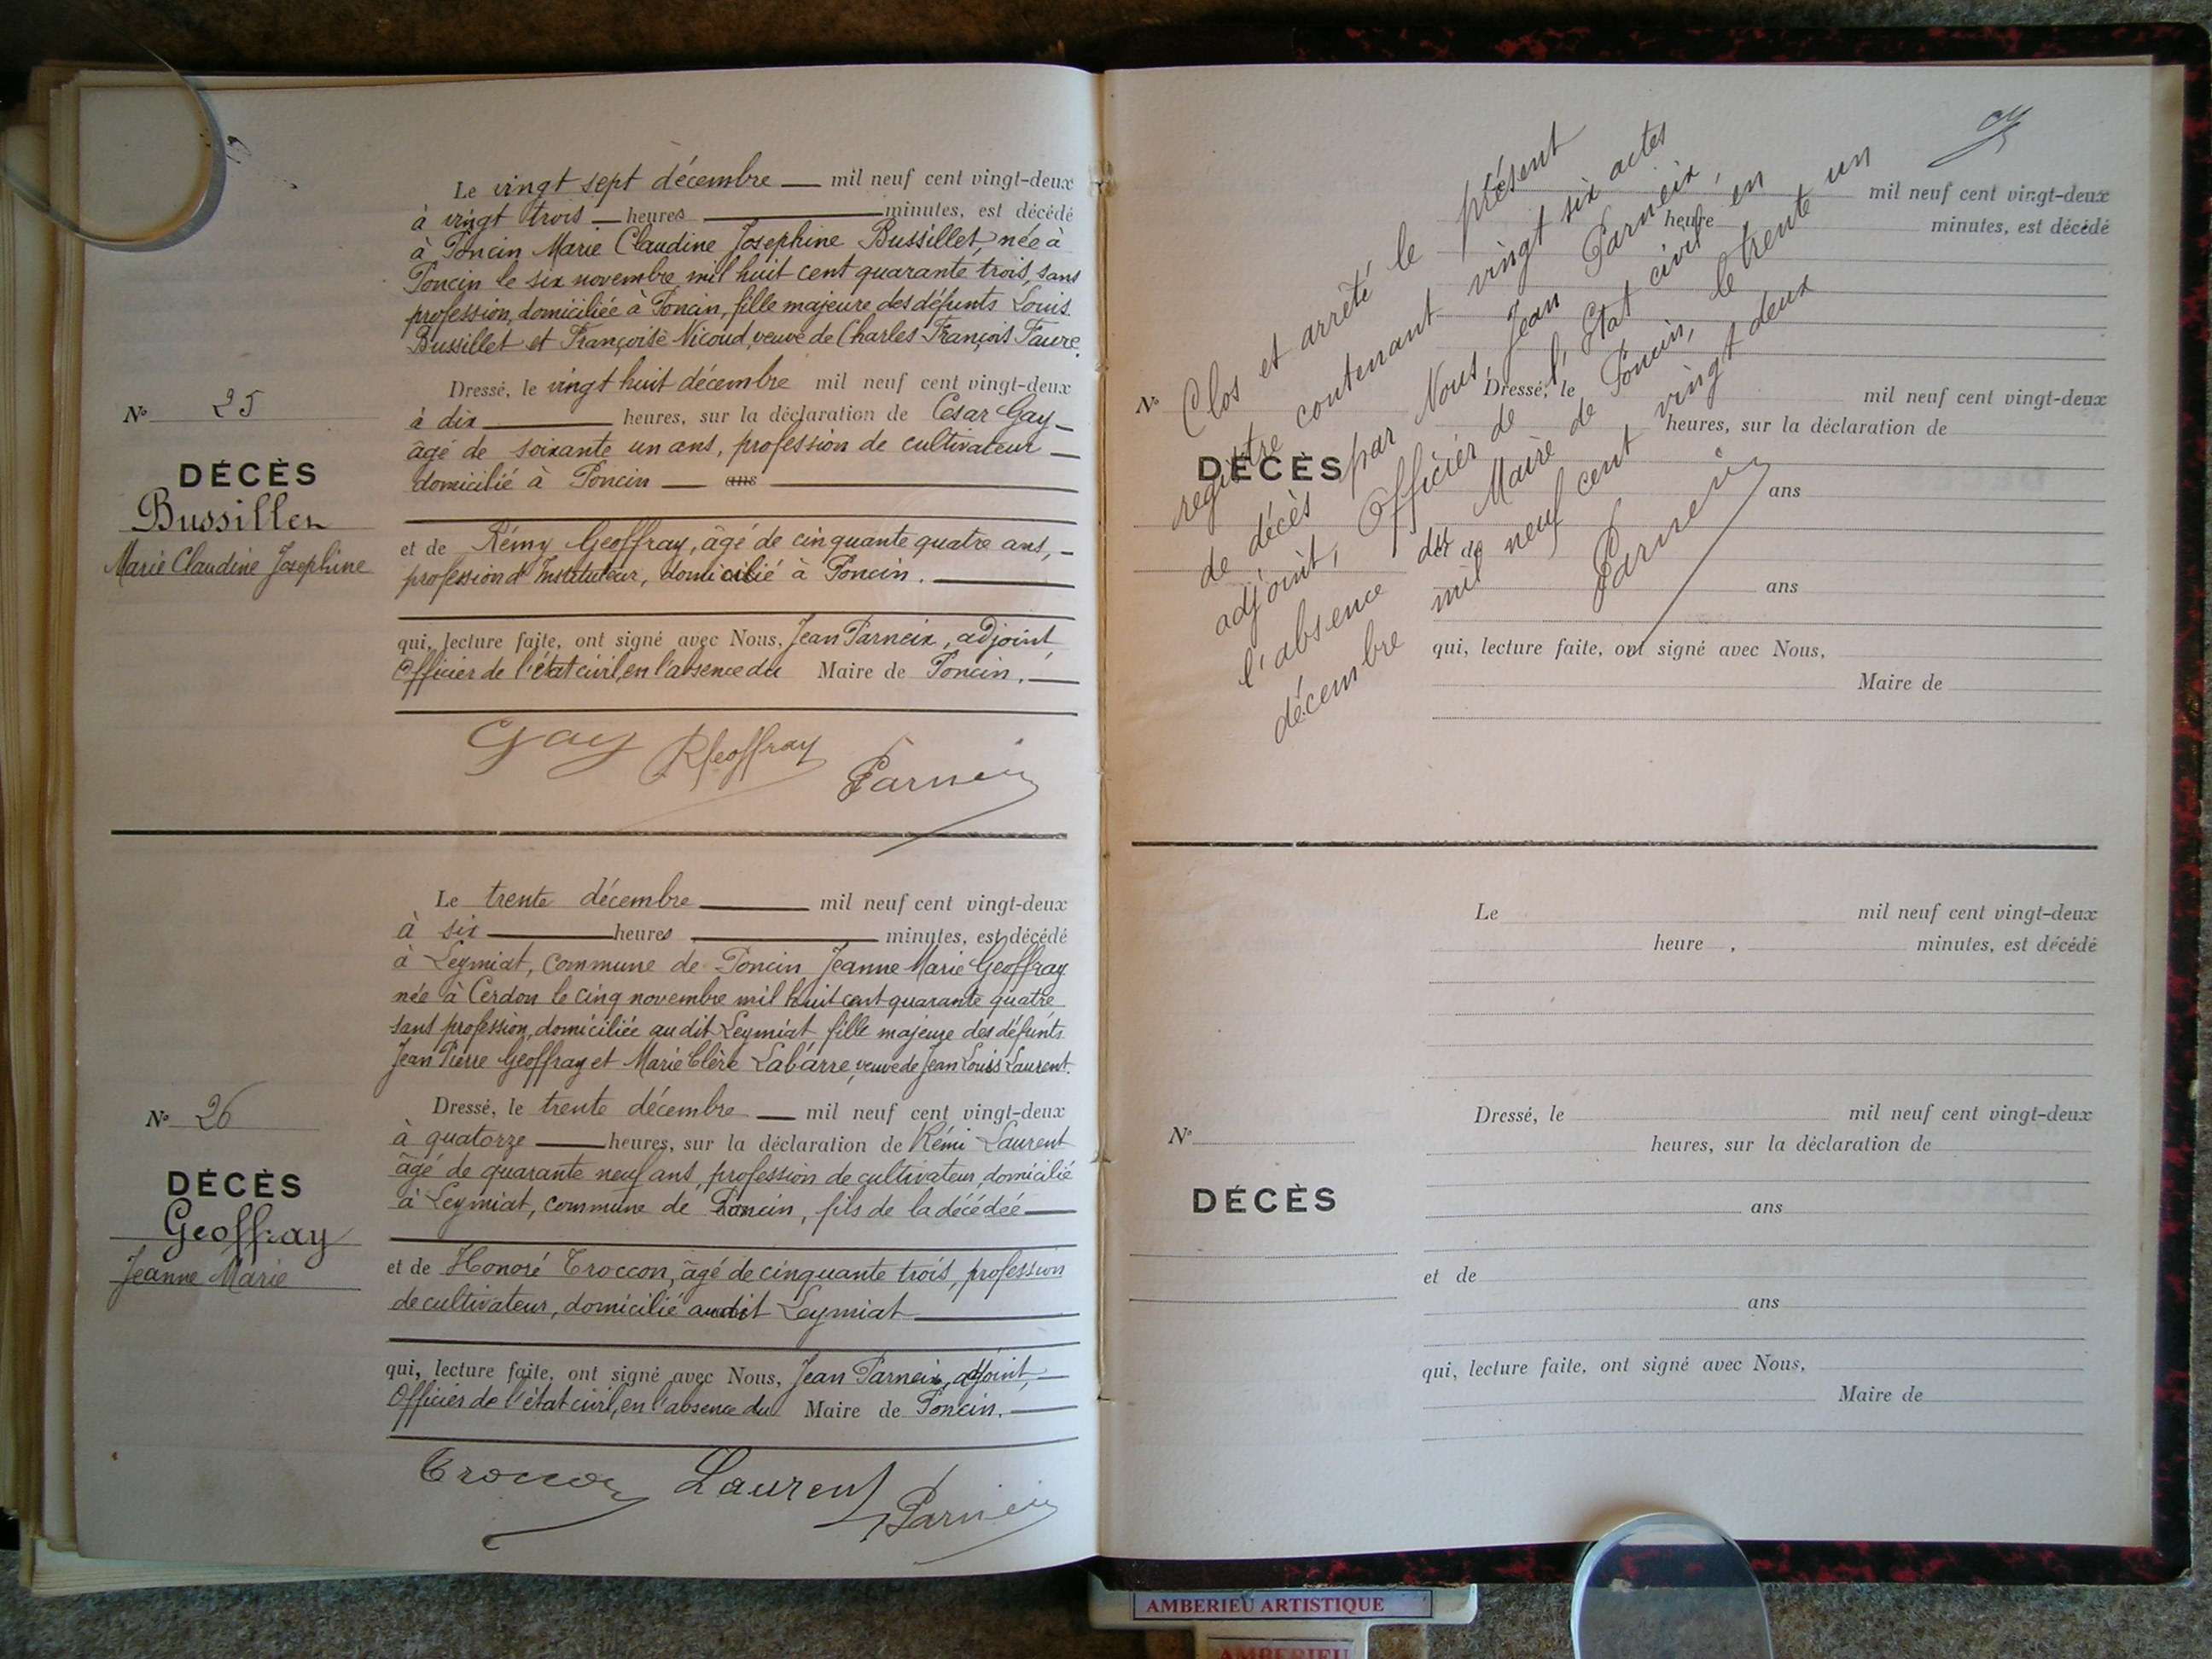 Le vingt sept décembre — mil neuf cent vingt-deux
à vingt trois — heures — minutes, est décédé
à Poncin Marie Claudine Josephine Bussillet, née à
Poncin le six novembre mil huit cent quarante trois, sans
profession, domiciliée à Poncin, fille majeure des défunts Louis
Bussillet et Françoise Nicoud, veuve de Charles François Faure.
Dressé, le vingt huit décembre mil neuf cent vingt-deux
à dix — heures, sur la déclaration de César Gay —
âgé de soixante un ans, profession de cultivateur —
domicilié à Poncin — ans —
et de Rémy Geoffray, âgé de cinquante quatre ans, —
profession d'Instituteur, domicilié à Poncin. —
qui, lecture faite, ont signé avec Nous, Jean Parneix, adjoint,
Officier de l'état civil, en l'absence du Maire de Poncin. —
Gay RGeoffray Parneix
N° 25
DÉCÈS
Bussillet
Marie Claudine Josephine
Le trente décembre — mil neuf cent vingt-deux
à six — heures — minutes, est décédé
à Leymiat, commune de Poncin Jeanne Marie Geoffray
née à Cerdon le cinq novembre mil huit cent quarante quatre
sans profession, domiciliée au dit Leymiat fille majeure des défunts
Jean Pierre Geoffray et Marie Clère Labarre, veuve de Jean Louis Laurent.
Dressé, le trente décembre — mil neuf cent vingt-deux
à quatorze — heures, sur la déclaration de Rémi Laurent
âgé de quarante neuf ans, profession de cultivateur, domicilié
à Leymiat, commune de Poncin, fils de la décédée —
et de Honoré Troccon, âgé de cinquante trois, profession
de cultivateur, domicilié audit Leymiat —
qui, lecture faite, ont signé avec Nous, Jean Parneix, adjoint, —
Officier de l'état civil, en l'absence du Maire de Poncin. —
Troccon Laurent Parneix
N° 26
DÉCÈS
Geoffray
Jeanne Marie
Clos et arrêté le présent
registre contenant vingt six actes
de décès par Nous, Jean Parneix,
adjoint, Officier de l'Etat civil en
l'absence du Maire de Poncin, le trente un
décembre mil neuf cent vingt deux
Parneix
mil neuf cent vingt-deux
heure minutes, est décédé
Dressé, le mil neuf cent vingt-deux
heures, sur la déclaration de
ans
et de
ans
qui, lecture faite, ont signé avec Nous,
Maire de
N°
DÉCÈS
Le mil neuf cent vingt-deux
heure , minutes, est décédé
Dressé, le mil neuf cent vingt-deux
heures, sur la déclaration de
ans
et de
ans
qui, lecture faite, ont signé avec Nous,
Maire de
N°
DÉCÈS
AMBERIEU ARTISTIQUE
AMBERIEU